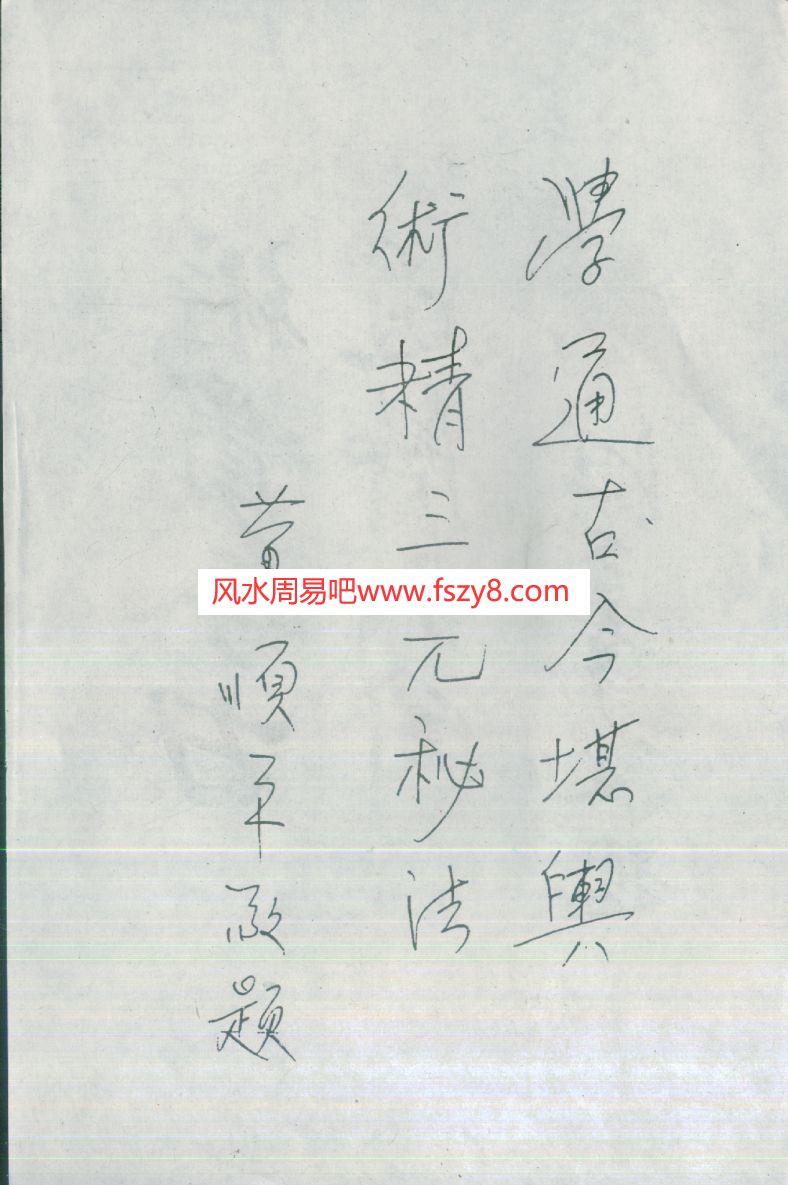 學通古今堪輿
術精三元秘法
順平敬題
风水周易吧www.fszy8.com